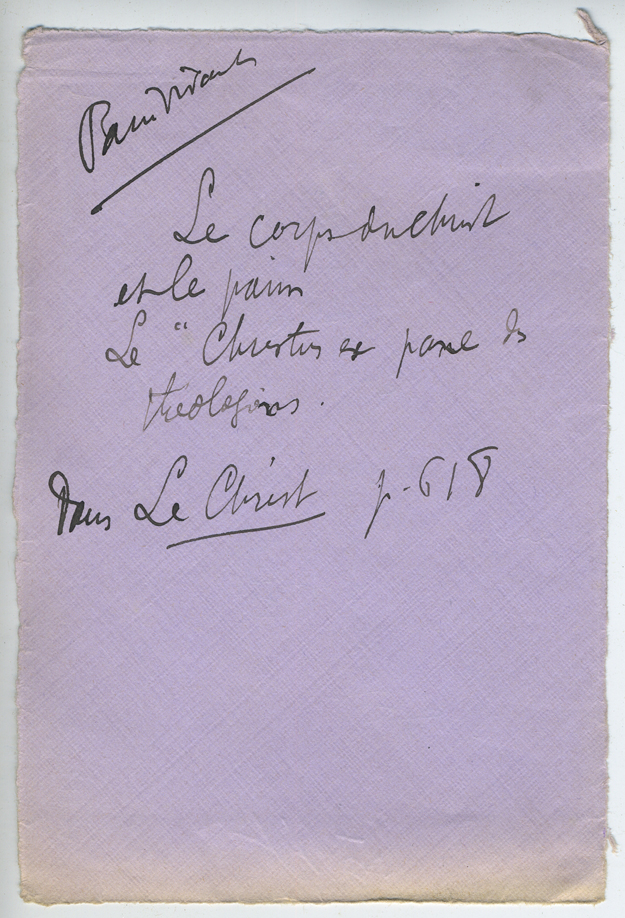 Pain vivant
Le corps du Christ
et le pain
Le " Christus ex pane des
théologiens.
Dans Le Christ p. 618